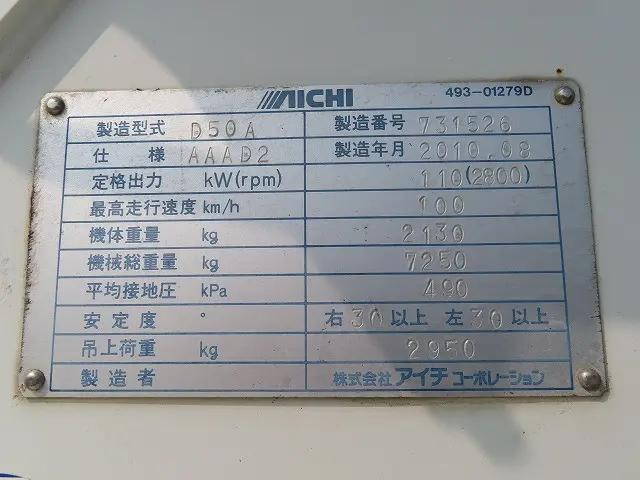 AICHI 493-01279D
製造型式 D50A 製造番号 731526
仕様 AAAD2 製造年月 2010.08
定格出力 kW(rpm) 110(2800)
最高走行速度 km/h 100
機体重量 kg 2130
機械総重量 kg 7250
平均接地圧 kPa 490
安定度 ° 右30以上 左30以上
吊上荷重 kg 2950
製造者 株式会社 アイチ コーポレーション